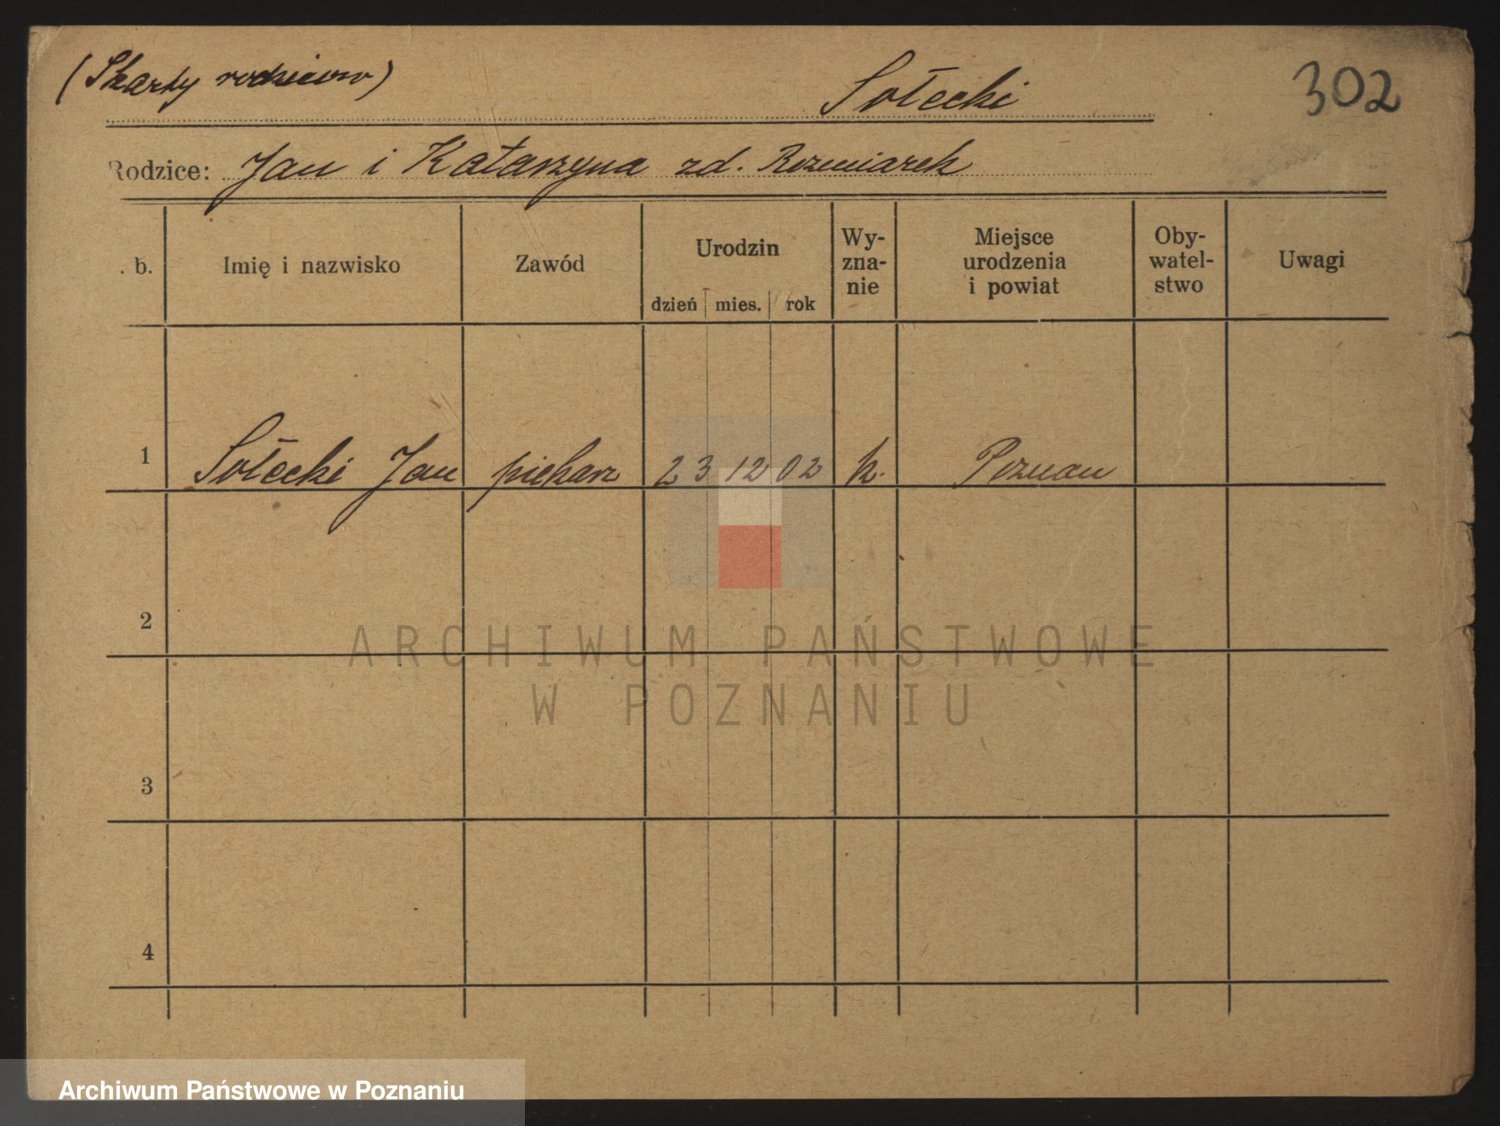 (Skarty rodziców) Sołecki 302
Rodzice: Jan i Katarzyna zd. Rozmiarek
. b. Imię i nazwisko Zawód Urodzin dzień mies. rok Wy-zna-nie Miejsce urodzenia i powiat Oby-watel-stwo Uwagi
1 Sołecki Jan piekarz 23 12 02 k. Poznan
2
ARCHIWUM PAŃSTWOWE
W POZNANIU
3
4
Archiwum Państwowe w Poznaniu